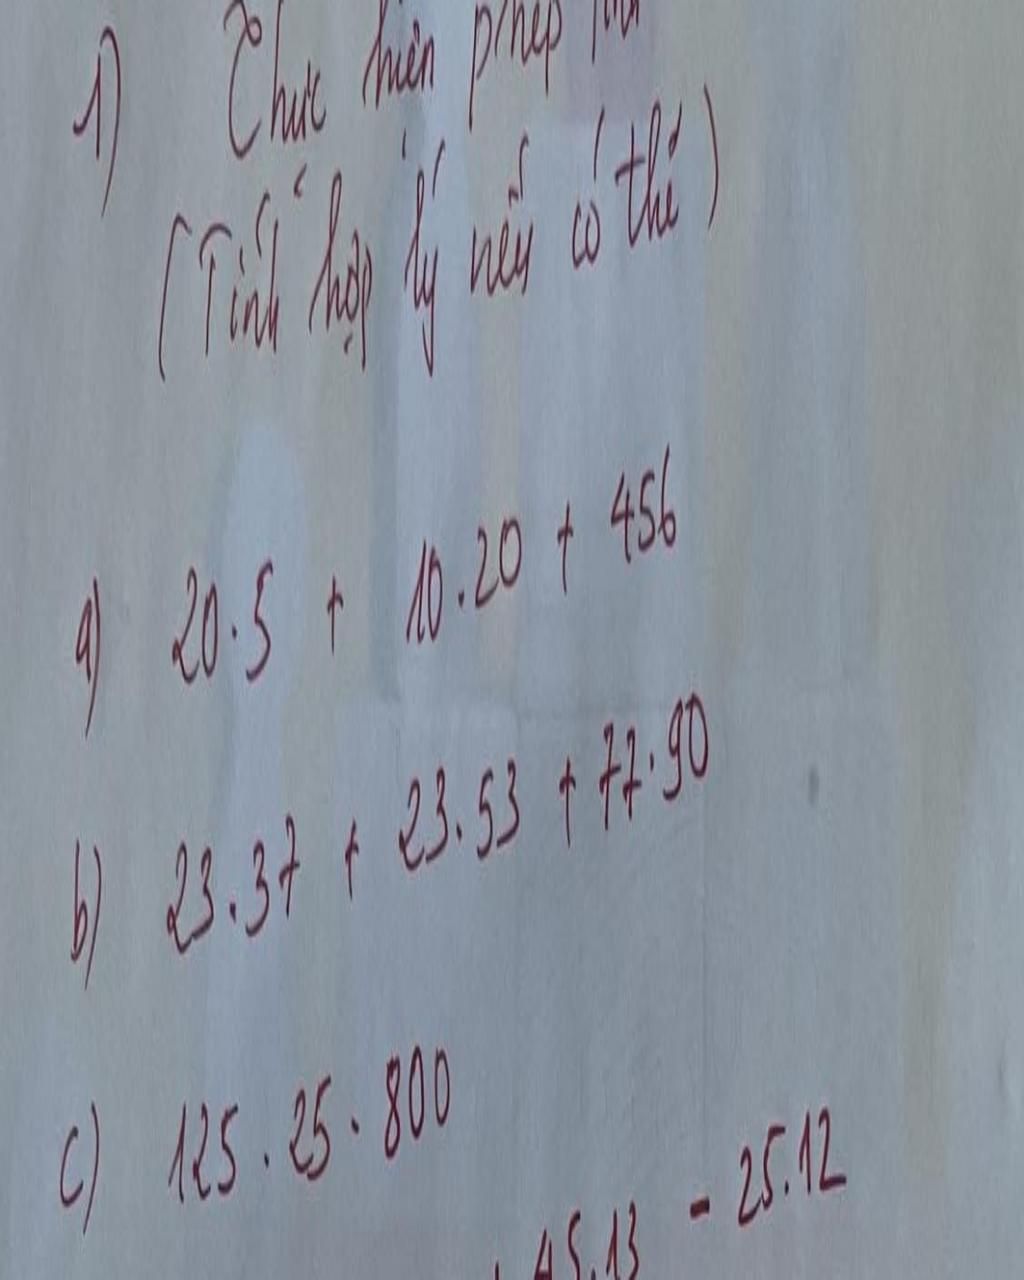 1) Thực hiện phép
(Tính hợp lý nếu có thể)
a) 20.5 + 10.20 + 456
b) 23.37 + 23.53 + 77.90
c) 125.25.800
45.13 - 25.12